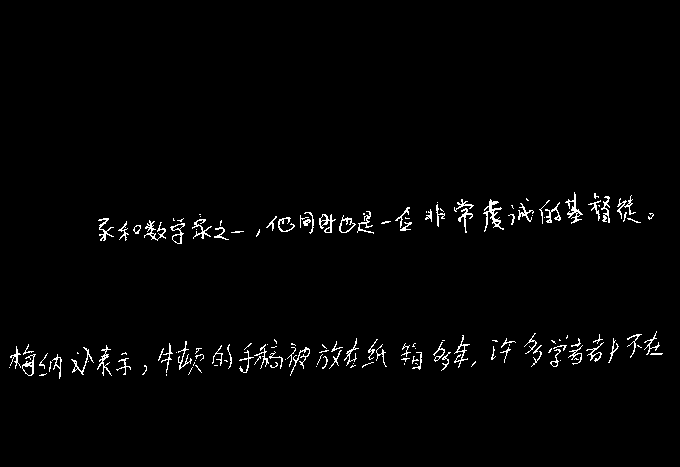 家和数学家之一，他同时也是一位非常虔诚的基督徒。
梅纳以表示，牛顿的手稿被放在纸箱多年，许多学者都不在